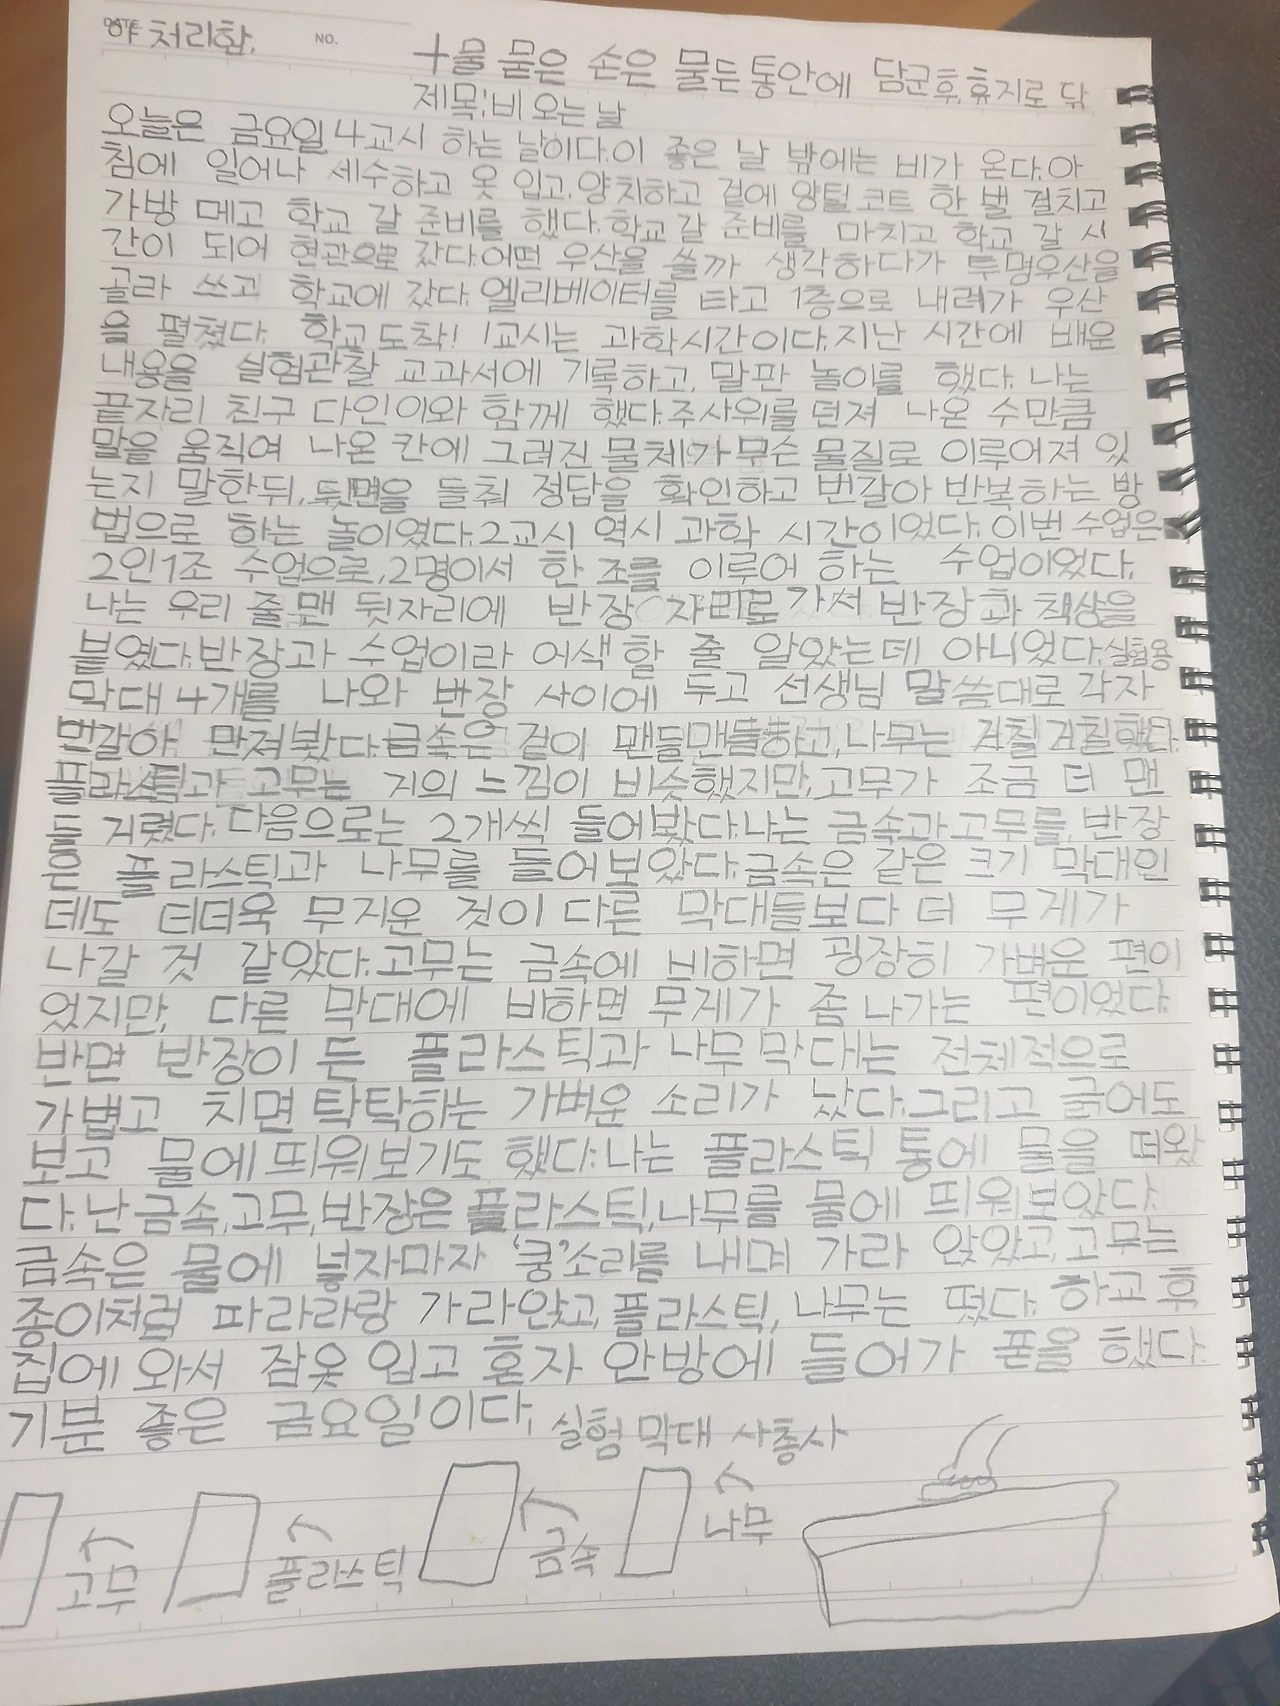 DATE.
NO.
아 처리함.
+물 묻은 손은 물든 통안에 담군후, 휴지로 닦
제목;비 오는 날
오늘은 금요일 4교시 하는 날이다.이 좋은 날 밖에는 비가 온다.아
침에 일어나 세수하고 옷 입고.양치하고 겉에 양털 코트 한 벌 걸치고
가방 메고 학교 갈 준비를 했다.학교 갈 준비를 마치고 학교 갈 시
간이 되어 현관으로 갔다.어떤 우산을 쓸까 생각하다가 투명우산을
골라 쓰고 학교에 갔다.엘리베이터를 타고 1층으로 내려가 우산
을 펼쳤다. 학교 도착! 1교시는 과학시간이다.지난 시간에 배운
내용을 실험관찰 교과서에 기록하고, 말판 놀이를 했다. 나는
끝자리 친구 다인이와 함께 했다.주사위를 던져 나온 수만큼
말을 움직여 나온 칸에 그려진 물체가 무슨 물질로 이루어져 있
는지 말한뒤, 뒷면을 들춰 정답을 확인하고 번갈아 반복하는 방
법으로 하는 놀이였다.2교시 역시 과학 시간이었다. 이번 수업은
2인1조 수업으로, 2명이서 한 조를 이루어 하는 수업이었다.
나는 우리 줄 맨 뒷자리에 반장 자리로 가서 반장과 책상을
붙였다.반장과 수업이라 어색할 줄 알았는데 아니었다.실험용
막대 4개를 나와 반장 사이에 두고 선생님 말씀대로 각자
번갈아 만져봤다.금속은 겉이 맨들맨들하고,나무는 거칠거칠했다.
플라스틱과 고무는 거의 느낌이 비슷했지만,고무가 조금 더 맨
들거렸다.다음으로는 2개씩 들어봤다.나는 금속과 고무를, 반장
은 플라스틱과 나무를 들어보았다.금속은 같은 크기 막대인
데도 더더욱 무거운 것이 다른 막대들보다 더 무게가
나갈 것 같았다.고무는 금속에 비하면 굉장히 가벼운 편이
었지만, 다른 막대에 비하면 무게가 좀 나가는 편이었다.
반면 반장이 든 플라스틱과 나무 막대는 전체적으로
가볍고 치면 탁탁하는 가벼운 소리가 났다.그리고 긁어도
보고 물에 띄워보기도 했다.나는 플라스틱 통에 물을 떠왔
다.난 금속,고무,반장은 플라스틱,나무를 물에 띄워보았다.
금속은 물에 넣자마자 '쿵'소리를 내며 가라 앉았고,고무는
종이처럼 파라라랑 가라앉고,플라스틱, 나무는 떴다. 하교 후
집에 와서 잠옷 입고 혼자 안방에 들어가 폰을 했다.
기분 좋은 금요일이다.
실험 막대 사총사
고무
플라스틱
금속
나무